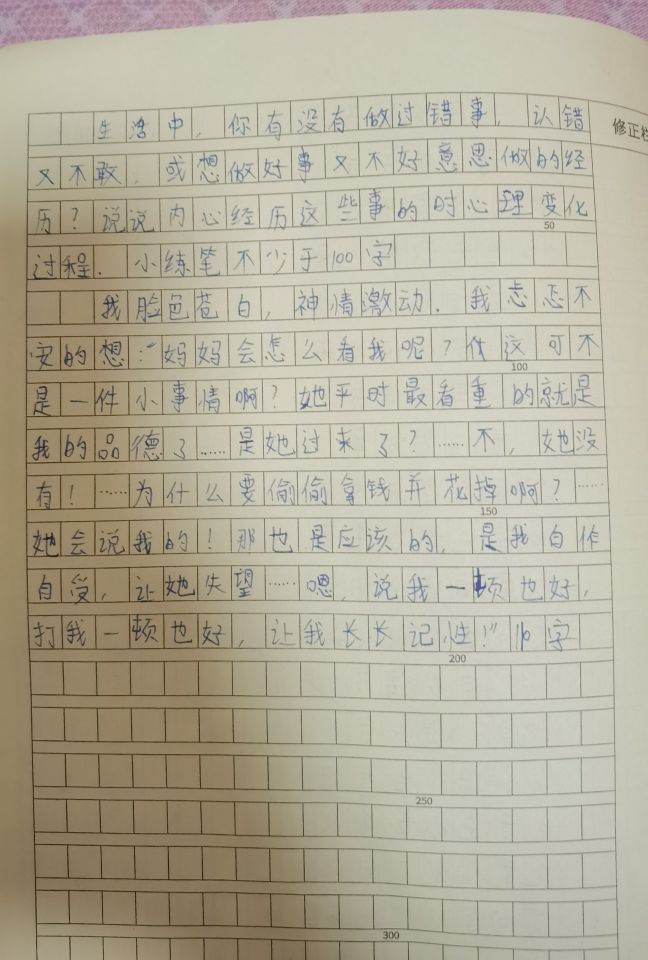 生活中，你有没有做过错事，认错
修正栏
又不敢，或想做好事又不好意思做的经
历？说说内心经历这些事的时心理变化
50
过程．小练笔不少于100字
我脸色苍白，神情激动．我忐忑不
安的想：“妈妈会怎么看我呢？做这可不
100
是一件小事情啊？她平时最看重的就是
我的品德了……是她过来了？……不，她没
有！……为什么要偷偷拿钱并花掉啊？……
150
她会说我的！那也是应该的，是我自作
自受，让她失望……嗯，说我一顿也好，
打我一顿也好，让我长长记性！”116字
200
250
300